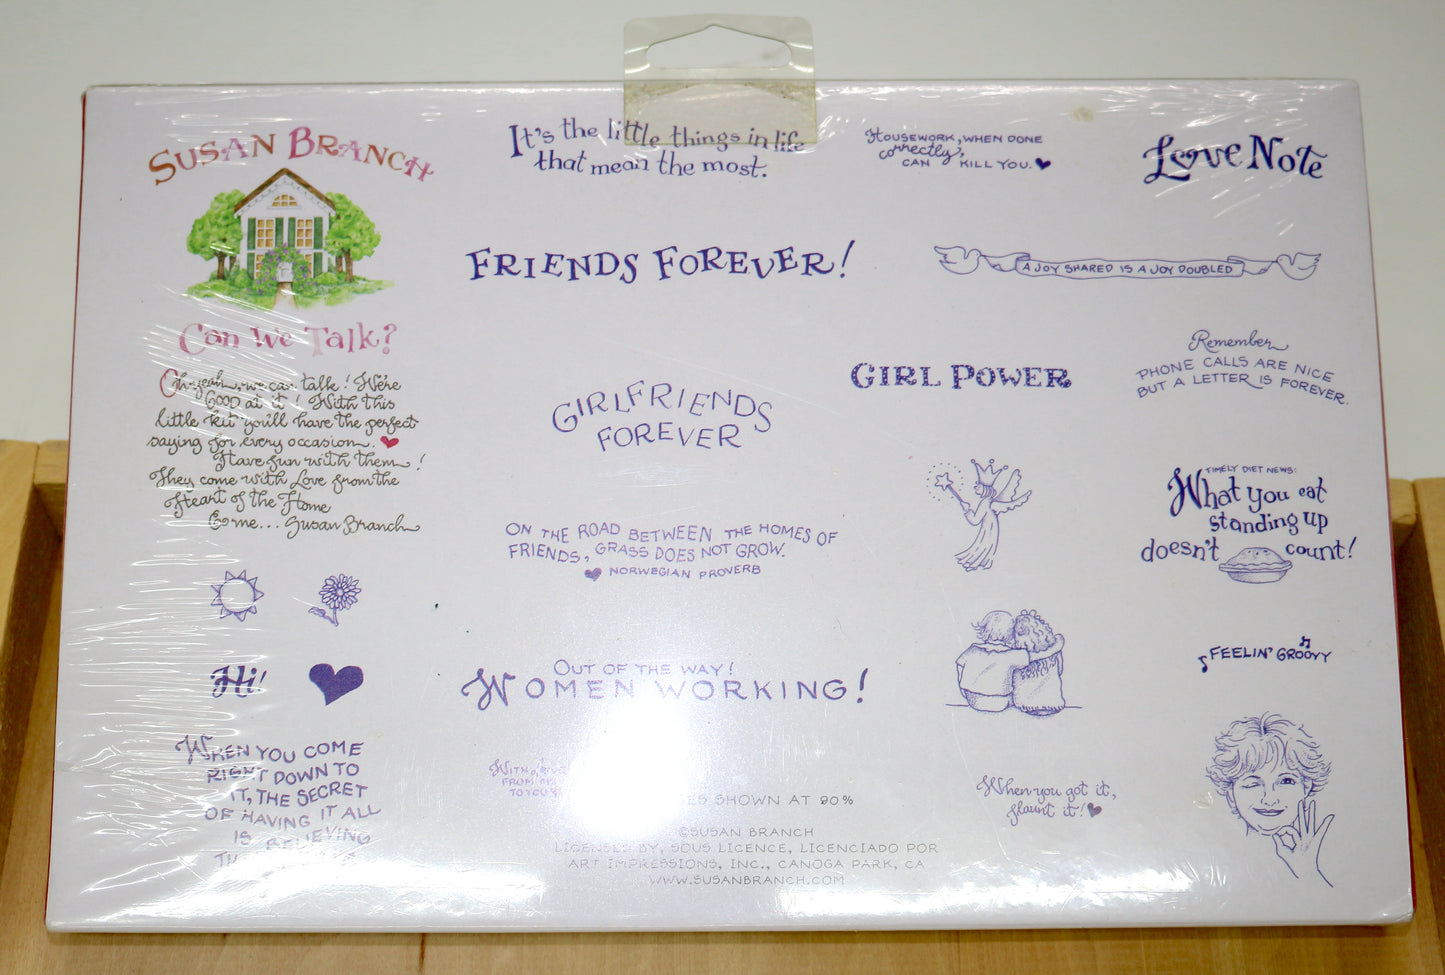 SUSAN BRANCH
Can We Talk?
Oh yeah, we can talk! We're
GOOD at it! With this
little kit you'll have the perfect
saying for every occasion.
Have fun with them!
They come with Love from the
Heart of the Home
to me... Susan Branch
Hi!
WHEN YOU COME
RIGHT DOWN TO
IT, THE SECRET
OF HAVING IT ALL
IS BELIEVING
It's the little things in life
that mean the most.
FRIENDS FOREVER!
GIRLFRIENDS
FOREVER
ON THE ROAD BETWEEN THE HOMES OF
FRIENDS, GRASS DOES NOT GROW.
NORWEGIAN PROVERB
OUT OF THE WAY!
WOMEN WORKING!
WITH
FROM
TO
SHOWN AT 90%
©SUSAN BRANCH
LICENSED BY, SOUS LICENCE, LICENCIADO POR
ART IMPRESSIONS, INC., CANOGA PARK, CA
WWW.SUSANBRANCH.COM
HOUSEWORK, WHEN DONE
correctly,
CAN KILL YOU.
LOVE NOTE
A JOY SHARED IS A JOY DOUBLED
GIRL POWER
Remember
PHONE CALLS ARE NICE
BUT A LETTER IS FOREVER.
TIMELY DIET NEWS:
What you eat
standing up
doesn't count!
FEELIN' GROOVY
When you got it,
flaunt it!